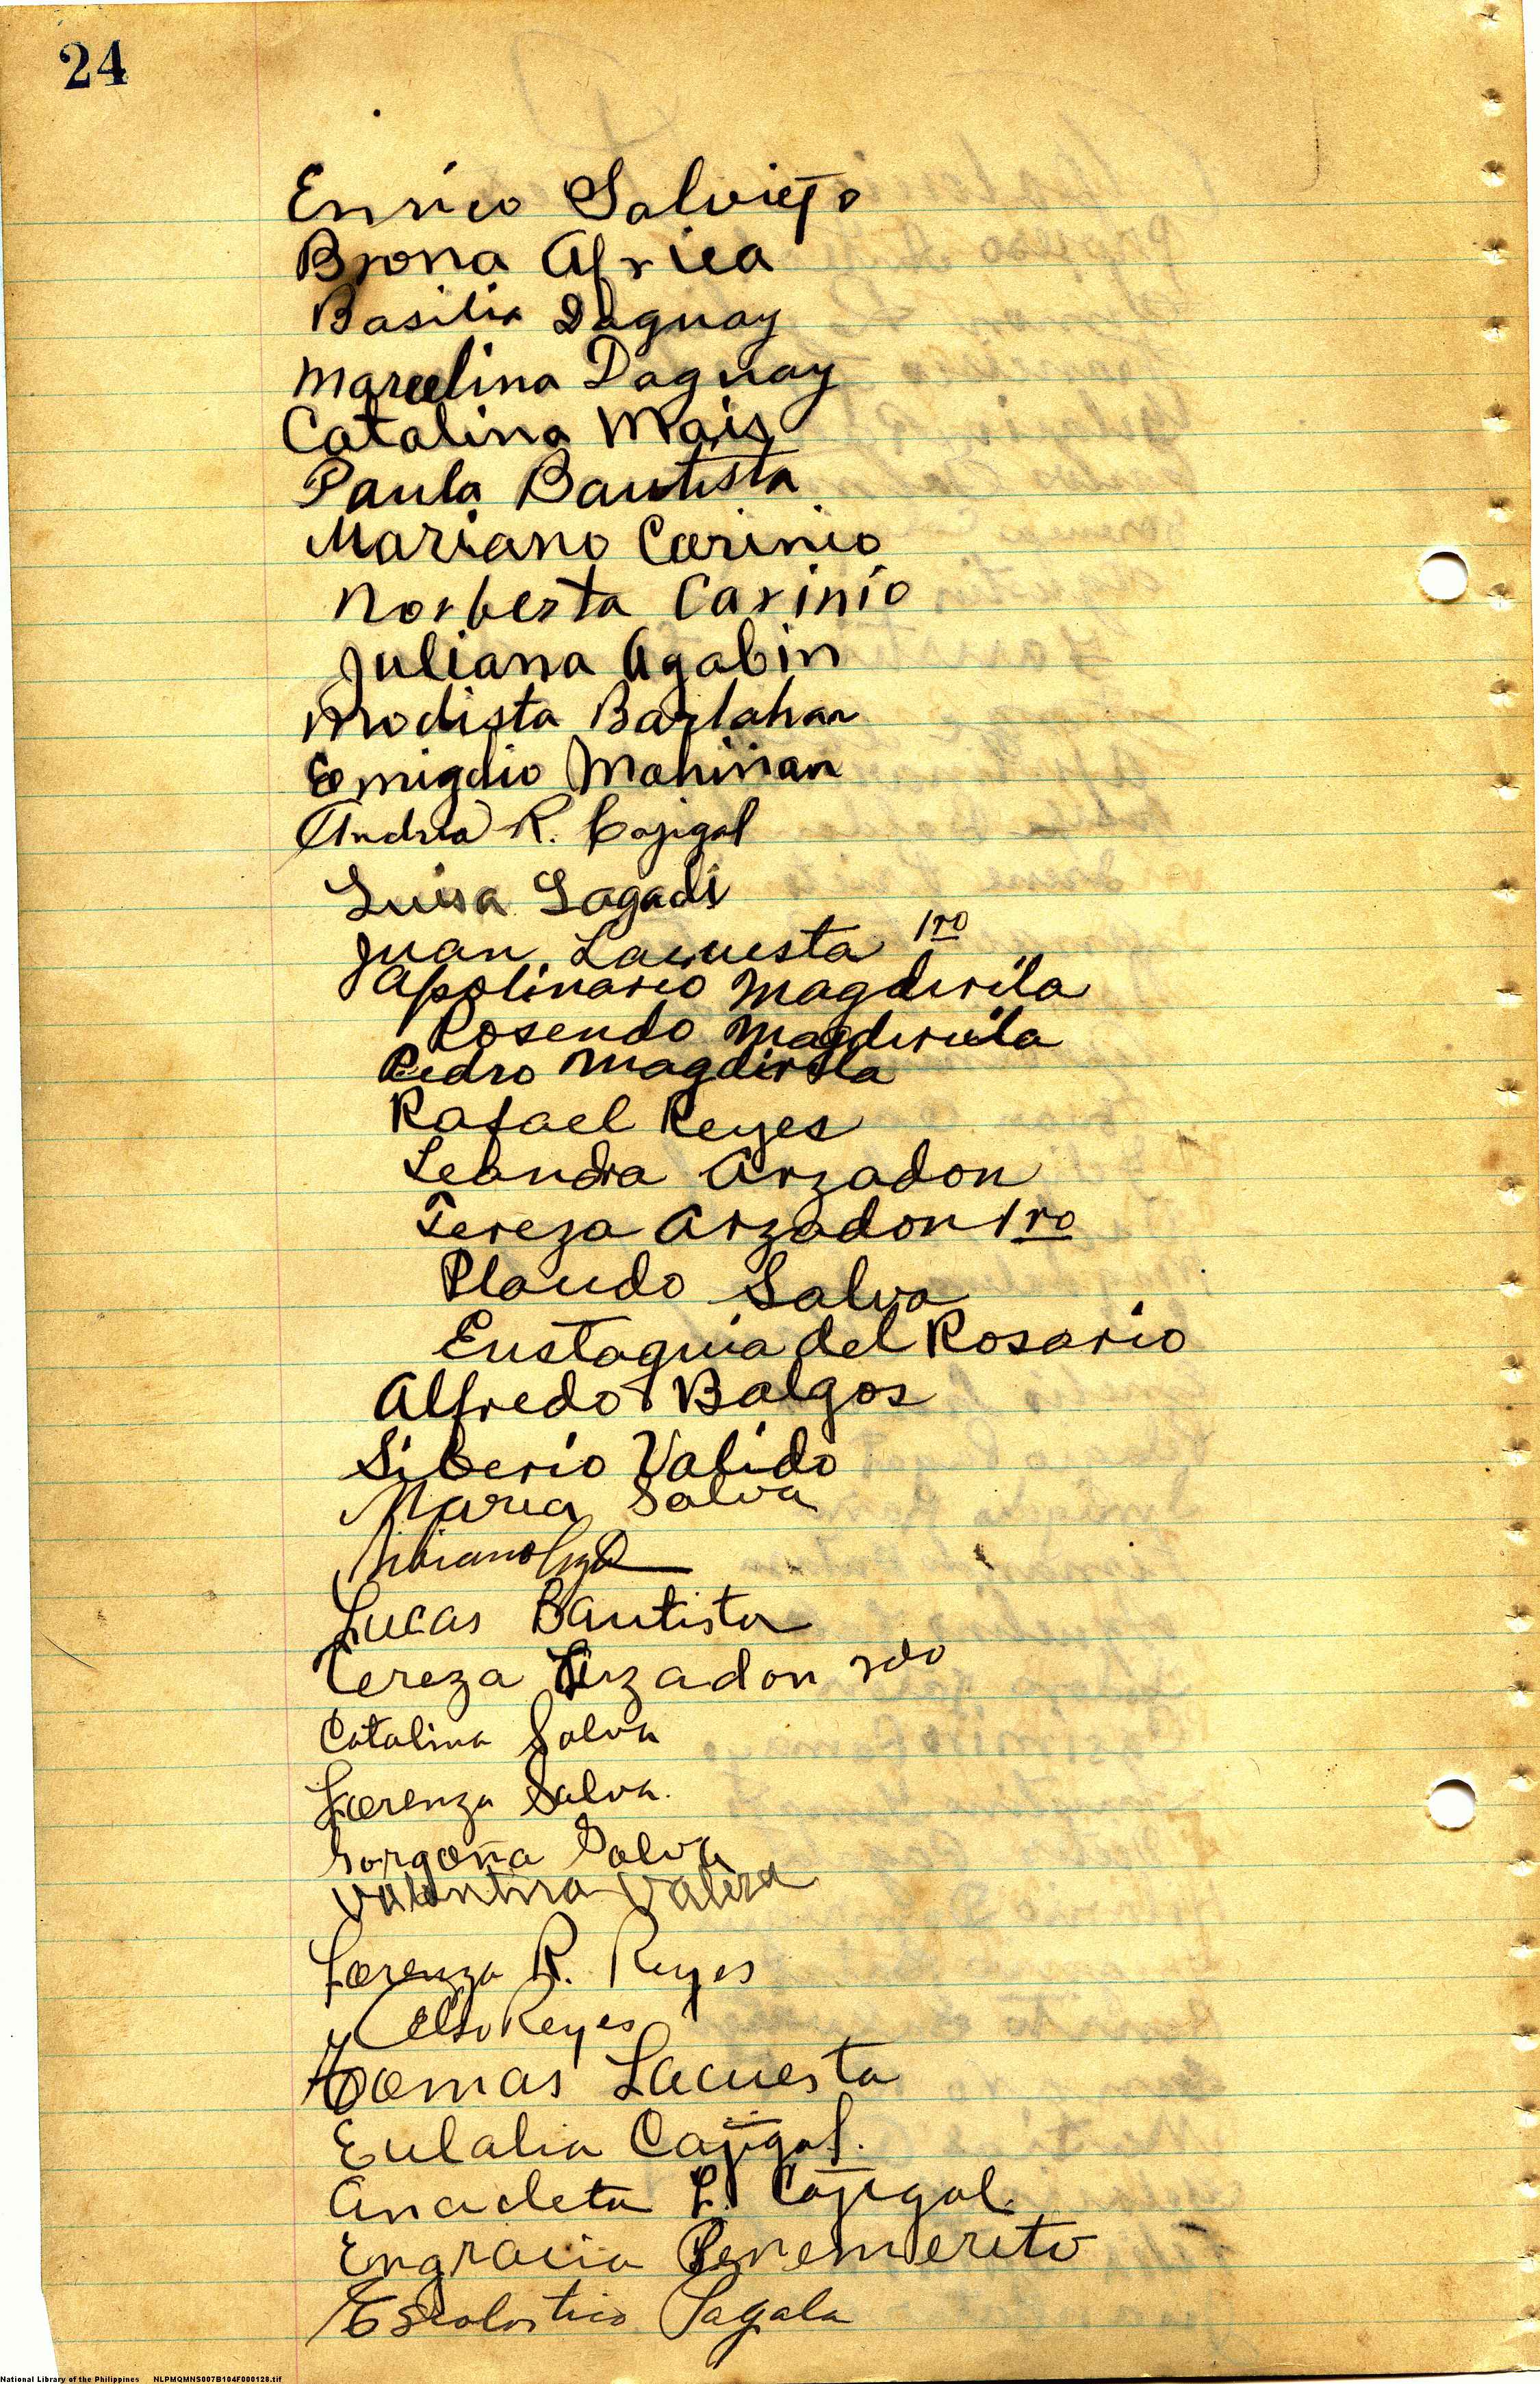 24
Enrico Salviejo
Brona Africa
Basilia Dagnay
Marcelina Dagnay
Catalina Mais
Paula Bautista
Mariano Carinio
Norberta Carinio
Juliana Agabin
Modista Barlahan
Emigdio Mahinan
Andrea R. Cajigal
Luisa Lagadi
Juan Lacuesta 1ro
Apolinario Magdirila
Rosendo Magdirila
Pedro Magdirila
Rafael Reyes
Leandra Arzadon
Tereza Arzadon 1ro
Plando Salva
Eustaquia del Rosario
Alfredo Balgos
Siberio Valido
Maria Salva
Lucas Bautista
Tereza Arzadon 2do
Catalina Salva
Lorenza Salva.
Gorgoña Salva
Valentina Valera
Lorenza R. Reyes
Celso Reyes
Tomas Lacuesta
Eulalia Cajigal.
Anacleta L. Cajigal
Engracia Benemerito
Escolastico Lagala
National Library of the Philippines NLPMQMNS007B104F000128.tif